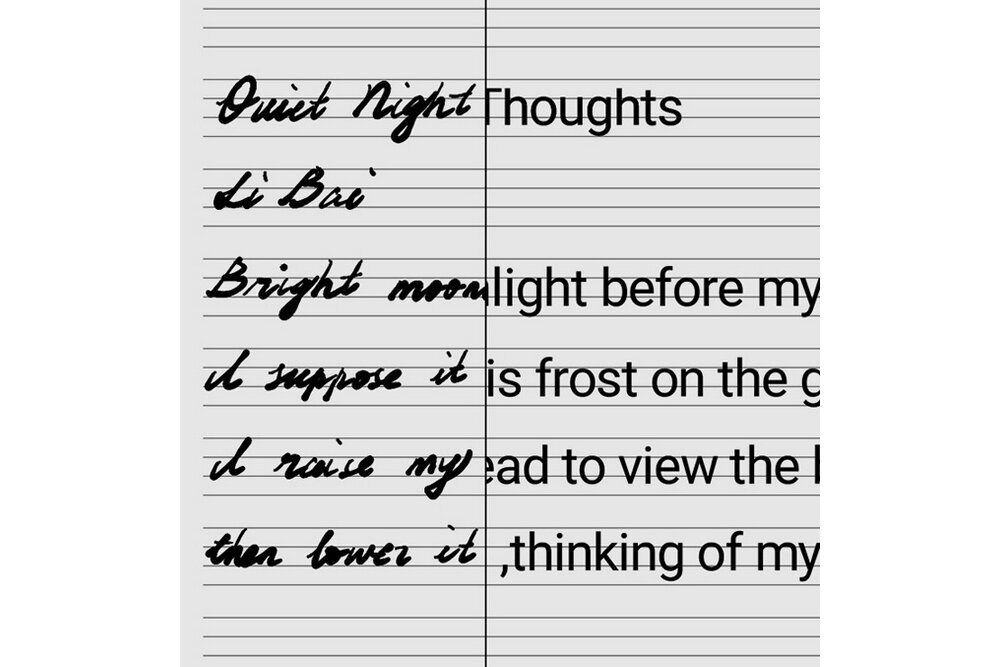 Quiet Night Thoughts
Li Bai
Bright moonlight before my
I suppose it is frost on the g
I raise my ead to view the
then lower it ,thinking of my